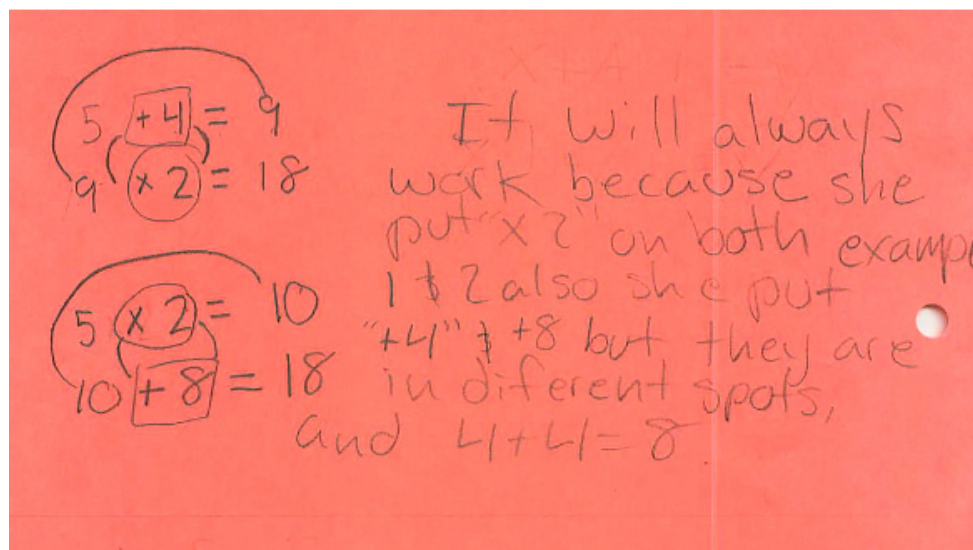 5 +4 = 9
9 x 2 = 18
5 x 2 = 10
10 + 8 = 18
It will always
work because she
put "x 2" on both examp
1 & 2 also she put
"+4" & +8 but they are
in diferent spots,
and 4+4=8.